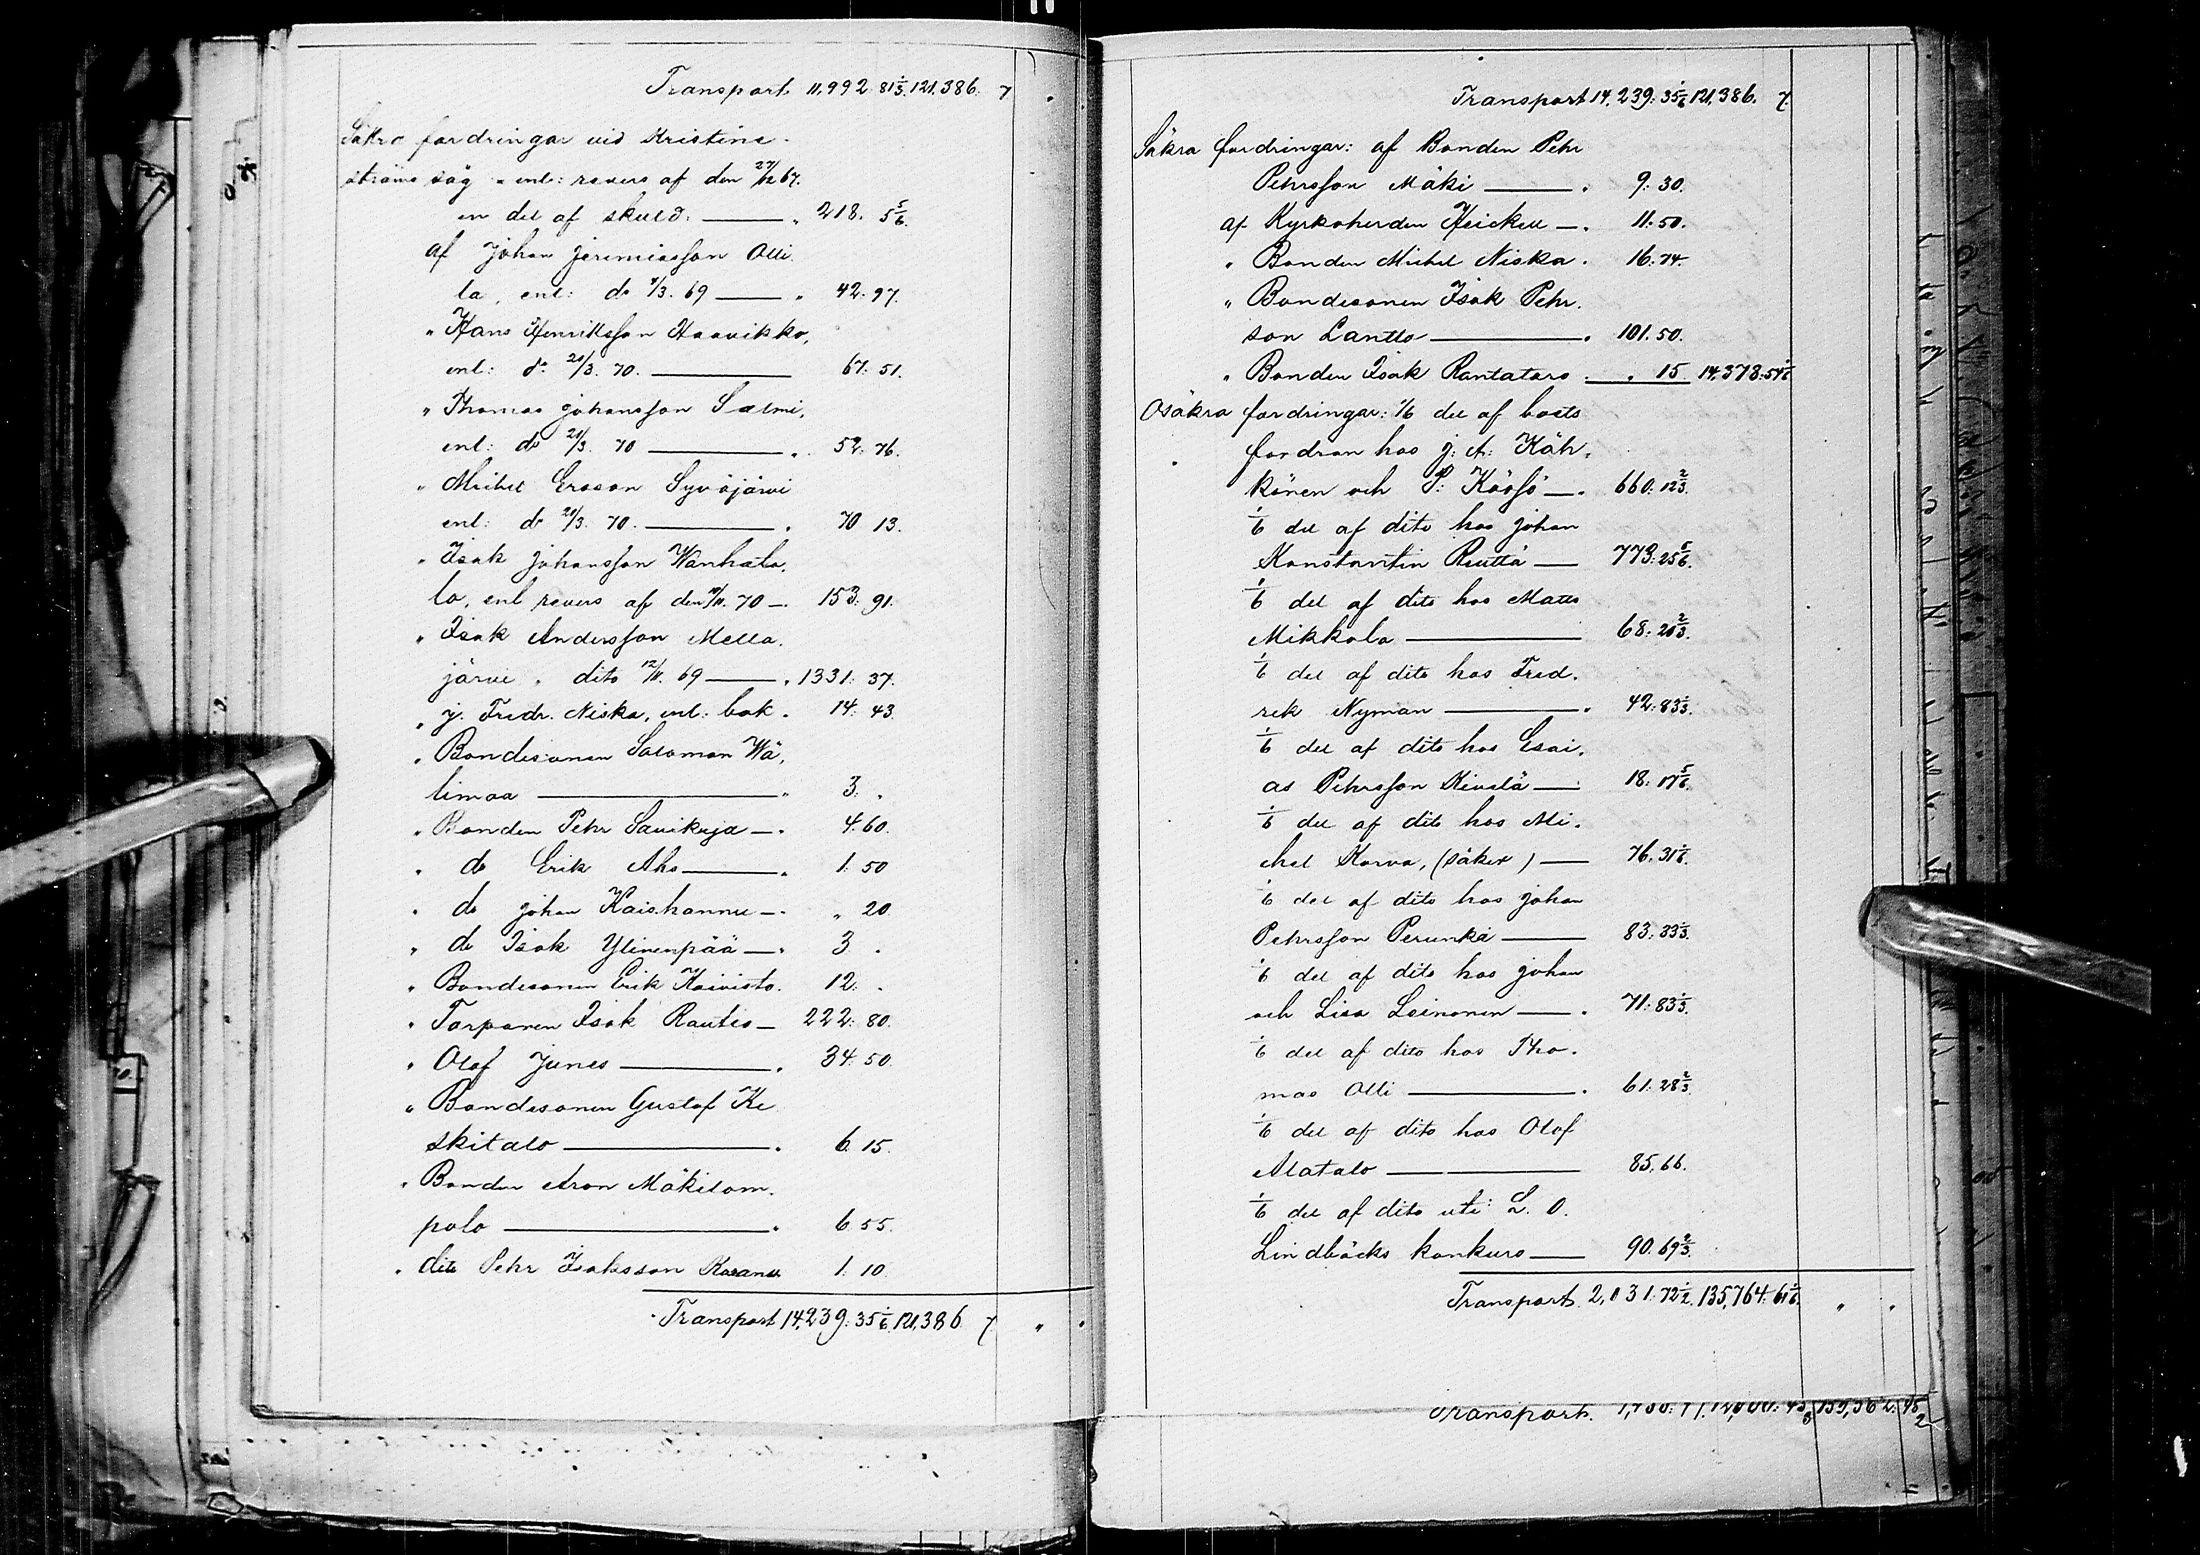 Transport 11,992. 81 1/3. 121,386. 7
Säkra fordringar vid Kristine-
ströms såg enl: revers af den 27/12 67.
en del af skuld. — " 218. 5 5/6.
af Johan Jeremiasson Olli
la, enl: do 1/3. 69 — " 42. 97.
" Hans Henriksson Haavikko,
enl: do 20/3. 70. — 67. 51.
" Thomas Johansson Salmi,
enl: do 20/3. 70 — 52. 76.
" Michel Ersson Syväjärvi
enl: do 20/3. 70. — 70 13.
" Isak Johansson Wanhata-
lo, enl revers af den 70 — 153. 91.
" Isak Andersson Mella-
järvi " dito 12/11. 69 — " 1331. 37.
" J. Fredr. Niska, enl: bok. 14. 43
" Bondesonen Salomon Wä-
limaa — " 3. "
" Bonden Pehr Savikuja — 4. 60.
" do Erik Aho — 1. 50
" do Johan Kaishannu — " 20
" do Isak Ylinenpää — 3 "
" Bondesonen Erik Koivisto. 12. "
" Torparen Isak Rautio — 222. 80.
" Olof Junes — 34. 50
" Bondesonen Gustaf Ke
skitalo — 6. 15.
" Bonden Aron Mäkilom-
polo — 6. 55.
" dito Pehr Isaksson 1. 10
Transport 14,239. 35 1/6. 121,386 7 "
Transport 14,239: 35 1/6 121,386. 7.
Säkra fordringar: af Bonden Pehr
Pehrsson Mäki — 9. 30.
af Kyrkoherden Heickell — 11. 50.
" Bonden Michel Niska. 16. 74.
" Bondesonen Isak Pehr-
son Lantto — 101. 50.
" Bonden Isak Rantatoro — " 15 14,378: 54 1/6
Osäkra fordringar: 1/6 del af boets
fordran hos J. A. Käh-
könen och P. — 660. 12 2/3.
1/6 del af dito hos Johan
Konstantin Reutta — 773. 25 5/6.
1/6 del af dito hos Matts
Mikkola — 68. 20 2/3.
1/6 del af dito hos Fred-
rik Nyman — 42. 83 1/3.
1/6 del af dito hos Esai-
as Pehrsson Kivelä — 18. 17 5/6.
1/6 del af dito hos Mi-
chel Korva, (säker) — 76. 31 1/6.
1/6 del af dito hos Johan
Pehrsson Perunka — 83. 33 1/3.
1/6 del af dito hos Johan
och Lisa Leinonen — 71. 83 1/3.
1/6 del af dito hos Tho-
mas Olli — 61. 28 2/3.
1/6 del af dito hos Olof
Alatalo — 85. 66.
1/6 del af dito uti L. O.
Lindbäcks konkurs — 90. 69 2/3.
Transport 2,031. 72 1/2. 135,764. 61 1/6. "
Transport.